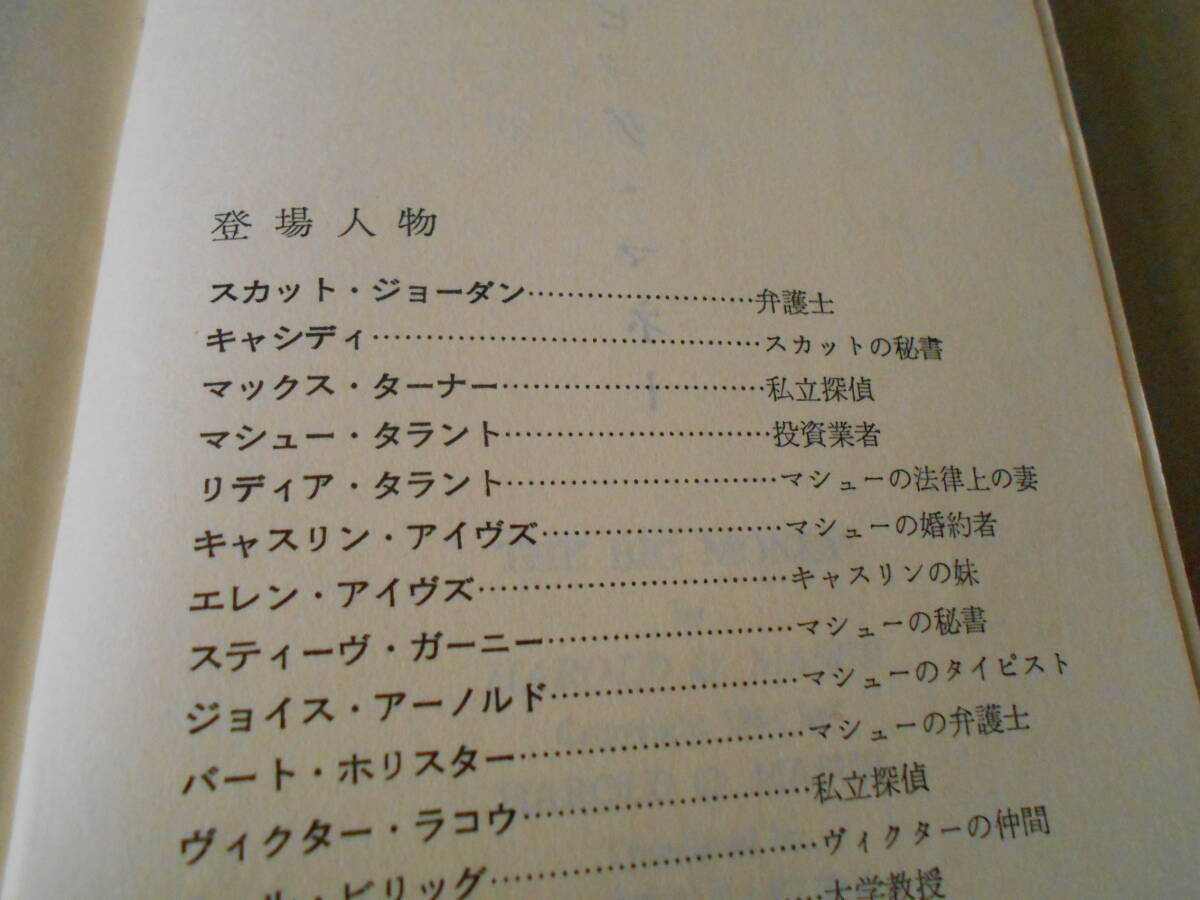 登場人物
スカット・ジョーダン……………………弁護士
キャシディ……………………………………スカットの秘書
マックス・ターナー………………………私立探偵
マシュー・タラント………………………投資業者
リディア・タラント………………………マシューの法律上の妻
キャスリン・アイヴズ……………………マシューの婚約者
エレン・アイヴズ…………………………キャスリンの妹
スティーヴ・ガーニー……………………マシューの秘書
ジョイス・アーノルド……………………マシューのタイピスト
バート・ホリスター………………………マシューの弁護士
ヴィクター・ラコウ………………………私立探偵
ル・ビリッグ………………………………ヴィクターの仲間
大学教授